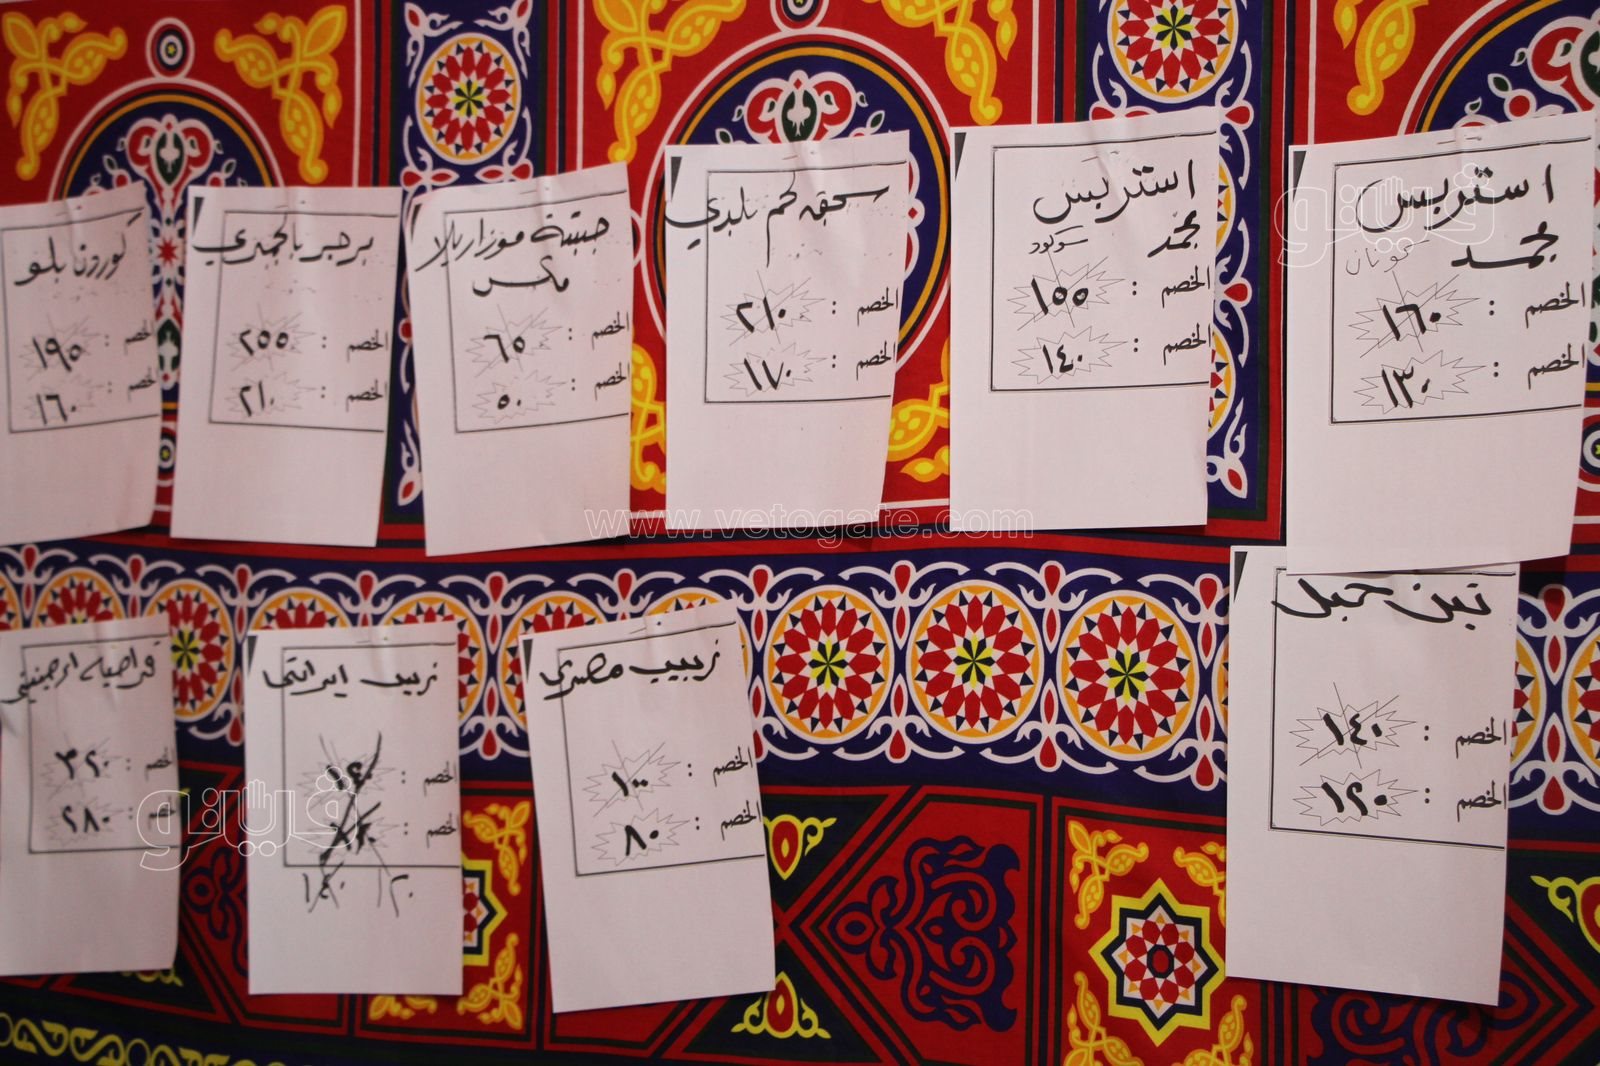 استربس
مجمد
كونان
الخصم : ١٦٠
الخصم : ١٣٠
استربس
مجمد
سوكود
الخصم : ١٥٥
الخصم : ١٤٠
سجق لحم بلدي
الخصم : ٢١٠
الخصم : ١٧٠
جبنة موزاريلا
مكس
الخصم : ٦٥
الخصم : ٥٠
برجر بالجمبري
الخصم : ٢٥٥
الخصم : ٢١٠
كوردن بلو
الخصم : ١٩٥
الخصم : ١٦٠
تين جبل
الخصم : ١٤٠
الخصم : ١٢٠
زبيب مصري
الخصم : ١٠٠
الخصم : ٨٠
زبيب ايراني
الخصم :
الخصم :
١٤٠ ١٢٠
قراصيه ارجنتيني
الخصم : ٣٢٠
الخصم : ٢٨٠
www.vetogate.com
ڤيتو
ڤيتو